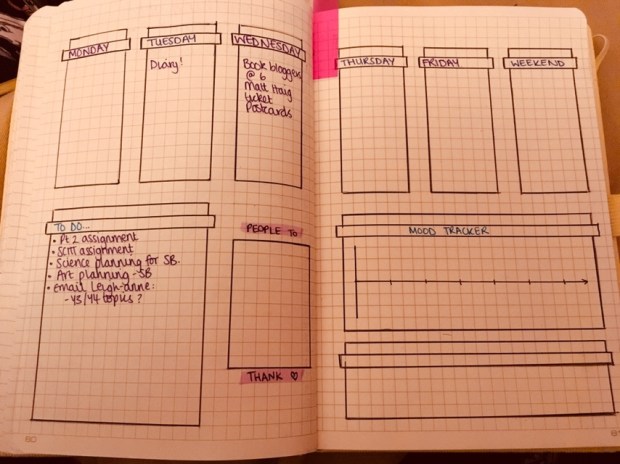 MONDAY
TUESDAY
Diary!
WEDNESDAY
Book bloggers
@ 6
Matt Haig
ticket
Postcards
THURSDAY
FRIDAY
WEEKEND
TO DO...
• Pt 2 assignment
• SCITT assignment
• Science planning for SB.
• Art planning - SB
• Email Leigh-anne:
- Y3/Y4 topics?
PEOPLE TO
THANK ♡
MOOD TRACKER
80